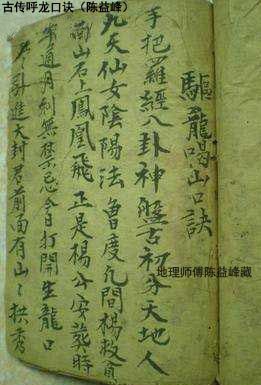 古传呼龙口诀（陈益峰）
驅龍喝山口訣
手把羅經八卦神盤古初分天地人
九天仙女陰陽法曾度凡間楊救貧
南山石上鳳凰飛正是楊公安葬時
年通月利無禁忌今日打開生龍口
引進大封君前面有山〻拱秀
地理师傅陈益峰藏